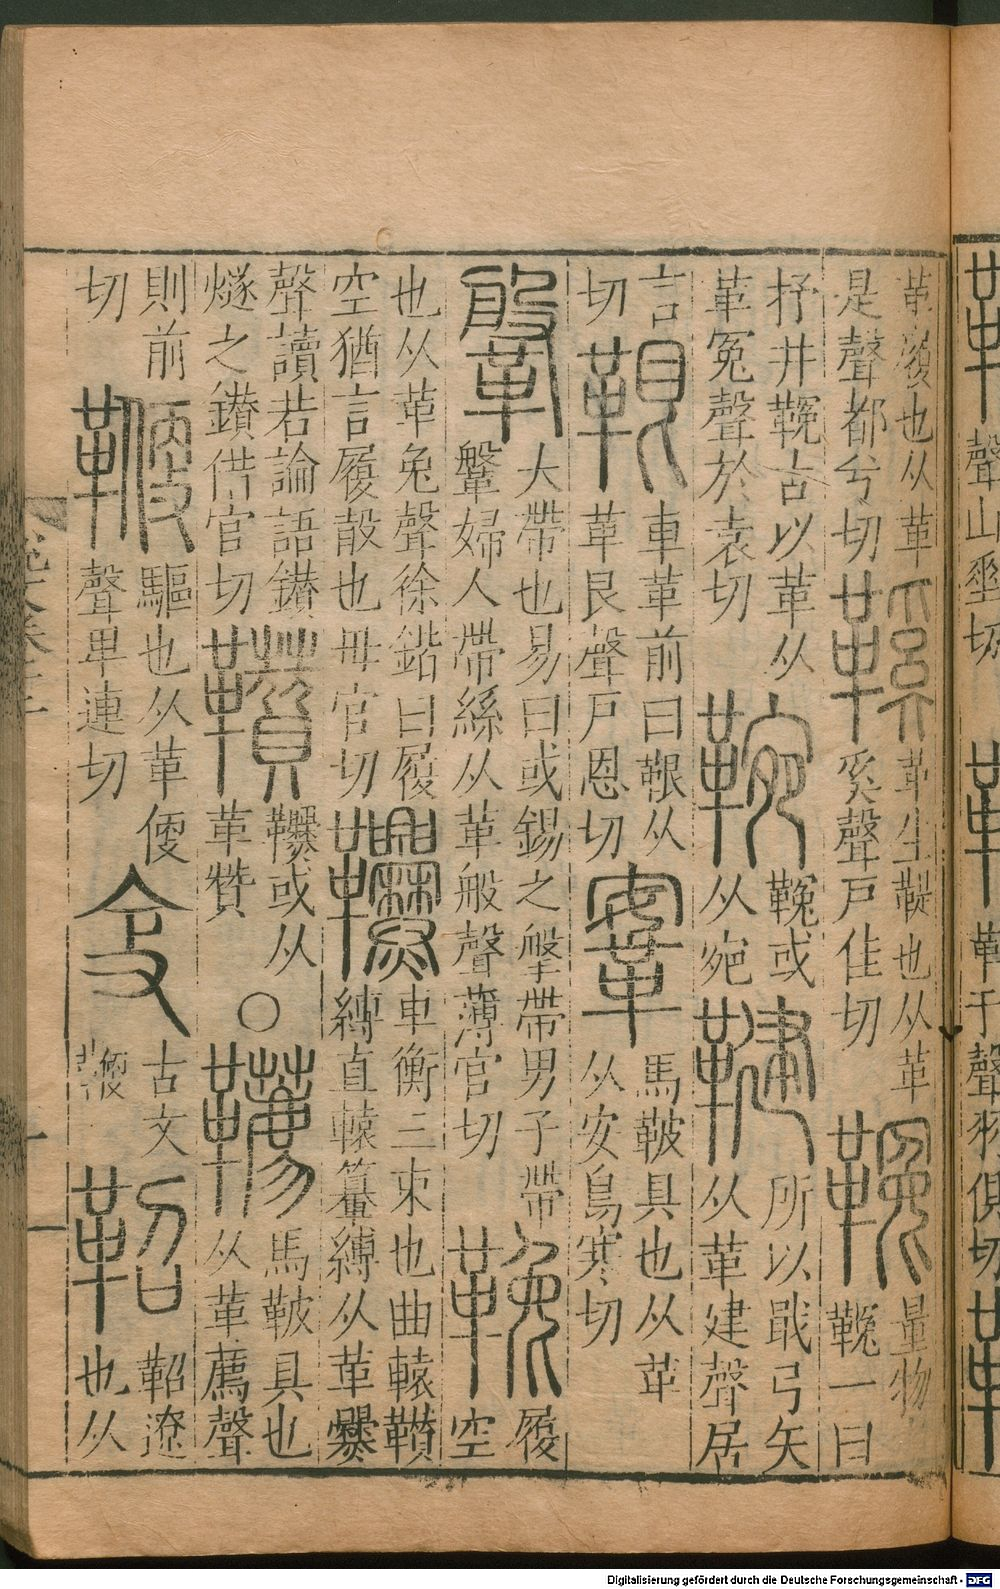 革履也从革是聲都兮切鞵革生鞮也从革奚聲戶佳切𩌑量物𩌑一曰
抒井𩌑古以革从革冤聲於袁切䩩𩌑或从宛鞬所以戢弓矢从革建聲居
言切鞎車革前曰鞎从革艮聲戶恩切鞌馬鞁具也从革从安烏寒切
鞶大帶也易曰或錫之鞶帶男子帶鞶婦人帶絲从革般聲薄官切鞔履空
也从革免聲徐鍇曰履空猶言履殼也毋官切䪜車衡三束也曲轅䪌縛直轅𥷽縛从革爨
聲讀若論語鑽燧之鑽借官切䪌䪜或从革贊○韉馬鞁具也从革薦聲
則前切鞭驅也从革㪅聲卑連切㪅古文鞭鞀鞀遼也从